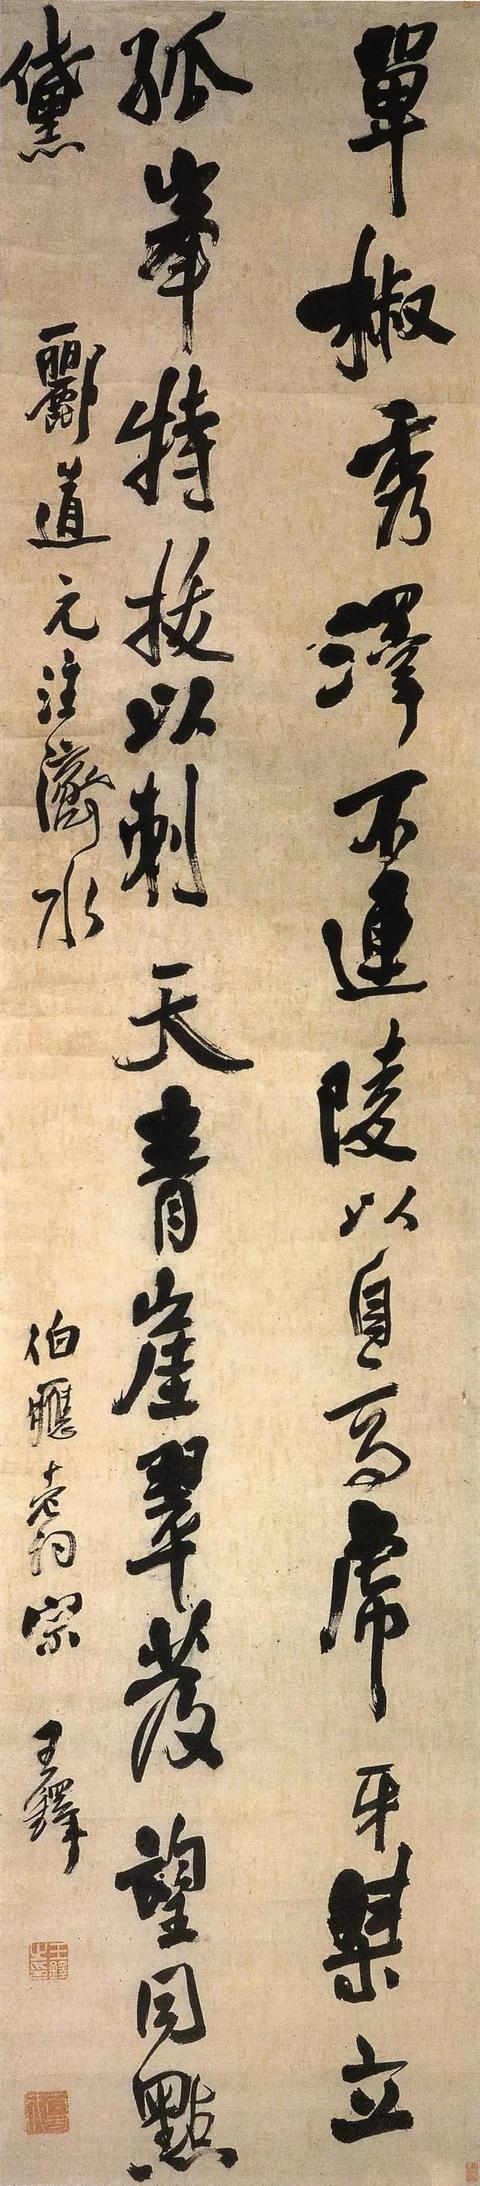 單椒秀澤不連陵以自高虎牙桀立
孤峯特拔以刺天青崖翠發望同點
黛
酈道元注濟水
伯應老詞宗
王鐸
王鐸之印